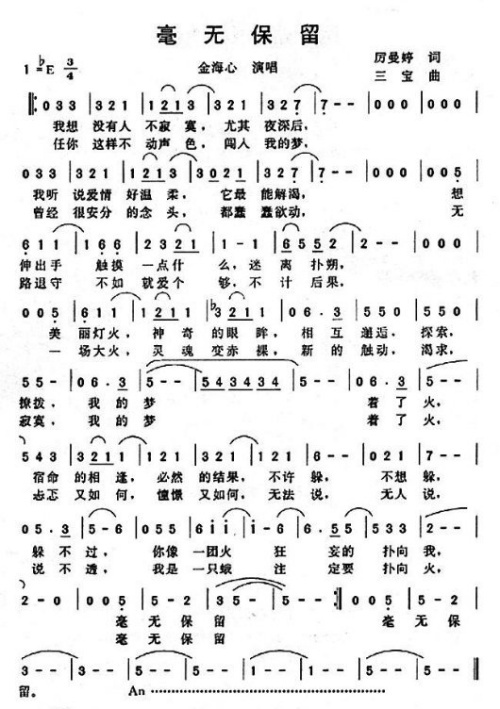 毫无保留
1=♭E 3/4
金海心 演唱
厉曼婷 词
三宝 曲
‖: 033 | 321 | 1213 | 321 | 1213 | 321 | 327 | 7-- | 000 | 000 |
我想 没有人 不寂寞, 尤其 夜深后,
任你 这样不 动声色, 闯人 我的梦,
033 | 321 | 1213 | 3021 | 1213 | 321 | 327 | 1-- | 000 | 005 |
我听 说爱情 好温柔, 它最 能解渴, 想
曾经 很安分 的念头, 都蠢 蠢欲动, 无
611 | 166 | 2321 | 1-1 | 6552 | 5-- | 000 |
伸出手 触摸 一点什 么,迷 离 扑朔,
路退守 不如 就爱个 够,不 计 后果,
005 | 611 | 121 | 1211 | ♭321 | 06.3 | 550 | 06.3 |
美 丽灯火, 神 奇的眼 眸, 相 互 邂逅, 探索,
一 场大火, 灵 魂变赤 裸, 新 的 触动, 渴求,
55- | 06.3 | 5-- | 543434 | 5-- | 5-- | 06.3 | 5-- |
撩拨, 我 的 梦 着 了 火,
寂寞, 我 的 梦 着 了 火,
543 | 3211 | 121 | 121 | 121 | 7-- | 021 | 7-- |
宿命 的相 逢, 必然 的结果, 不许 躲, 不想 躲,
忐忑 又如 何, 憧憬 又如何, 无法 说, 无人 说,
05.3 | 5-6 | 055 | 6ii | i-6 | 06.5 | 533 | 2-- |
躲 不 过, 你像 一团火 狂 妄的 扑向 我,
说 不 透, 我是 一只蛾 注 定要 扑向 火,
2-0 | 005 | 5-2 | 3-- | 35-- | 5-- :‖ 005 | 5-2 |
毫 无保 留 毫 无保
毫 无保 留
3-- | 3-- | 5-- | 5-- | 1-- | 1-- | 5-- | 5-- | 1-- | 1-- ‖
留。 An ……………………………